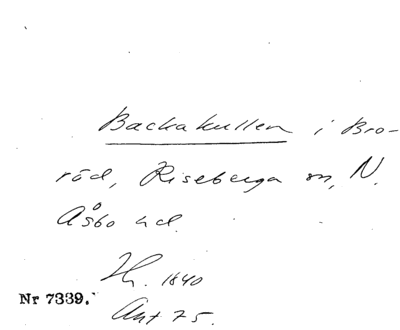 Backakullen i Bro-
röd, Riseberga sn, N.
Åsbo hd.
Hr. 1840
Nr 7339.
Ant 75.